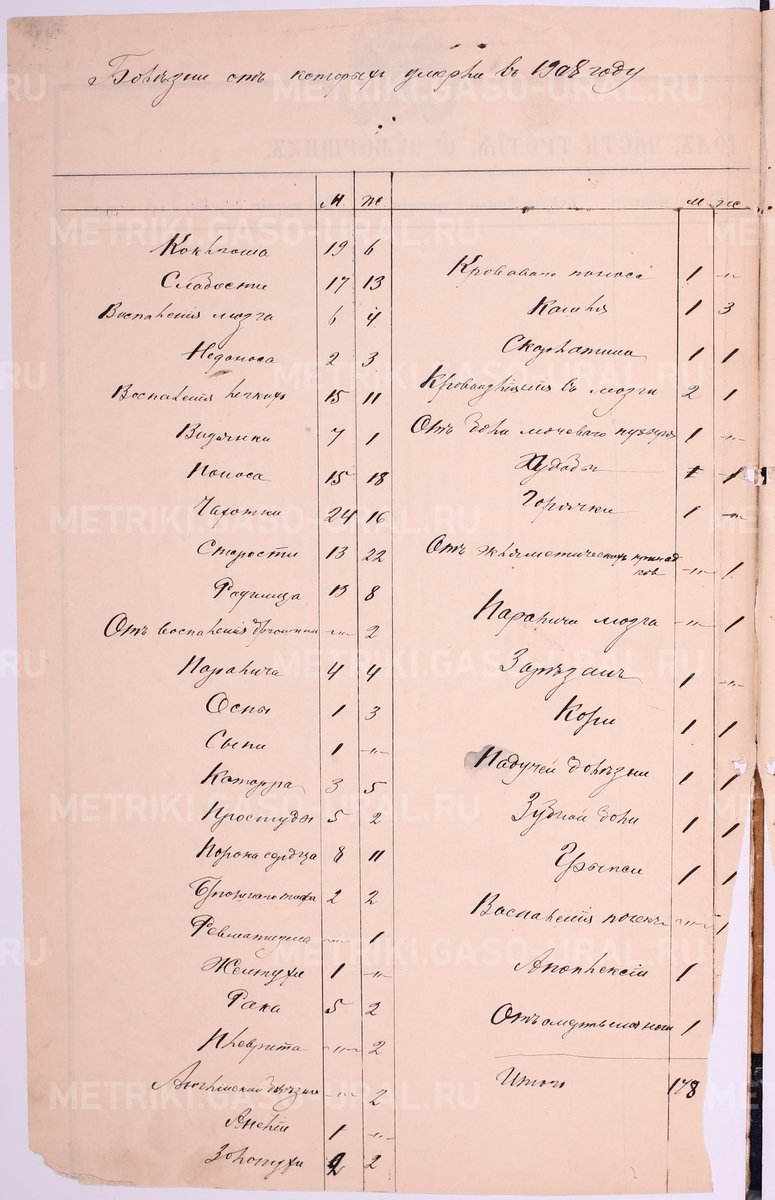 Болѣзни отъ которыхъ умерли въ 1908 году
м ж
Коклюша 19 6
Слабости 17 13
Воспаленія мозга 6 4
Недоноса 2 3
Воспаленія легкихъ 15 11
Водянки 7 1
Поноса 15 18
Чахотки 24 16
Старости 13 22
Родимца 13 8
Отъ воспаленія брюшины -"- 2
Паралича 4 4
Оспы 1 3
Сыпи 1 -"-
Катарра 3 5
Простуды 5 2
Порока сердца 8 11
Брюшного тифа 2 2
Ревматизма -"- 1
Желтухи 1 -"-
Рака 5 2
Плеврита -"- 2
Англійской болѣзни -"- 2
1 -"-
Золотухи 2 2
м ж
Кроваваго поноса 1 -"-
Кашля 1 3
Скарлатина 1 1
Кровоизліянія въ мозгу 2 1
Отъ боли мочеваго пузыря 1 -"-
Худобы 1
Горячки 1 -"-
Отъ эклямптическихъ припад
ковъ -"- 1
Паралича мозга -"- 1
Зарѣзанъ 1 -"-
Кори 1 1
Падучей болѣзни 1 1
Зубной боли 1 1
Грыжи 1 1
Воспаленія почекъ -"- 1
Апоплексіи 1
Отъ омертвенія ноги 1
Итого 178
METRIKI.GASO-URAL.RU